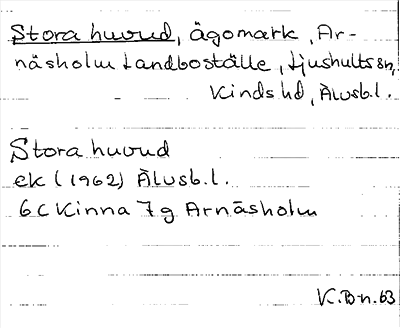 Stora huvud, ägomark, Ar-
näsholm Landboställe, Ljushults sn,
Kinds hd, Älvsb.l.
Stora huvud
ek (1962) Älvsb.l.
6C Kinna 7g Arnäsholm
K.Bn.63